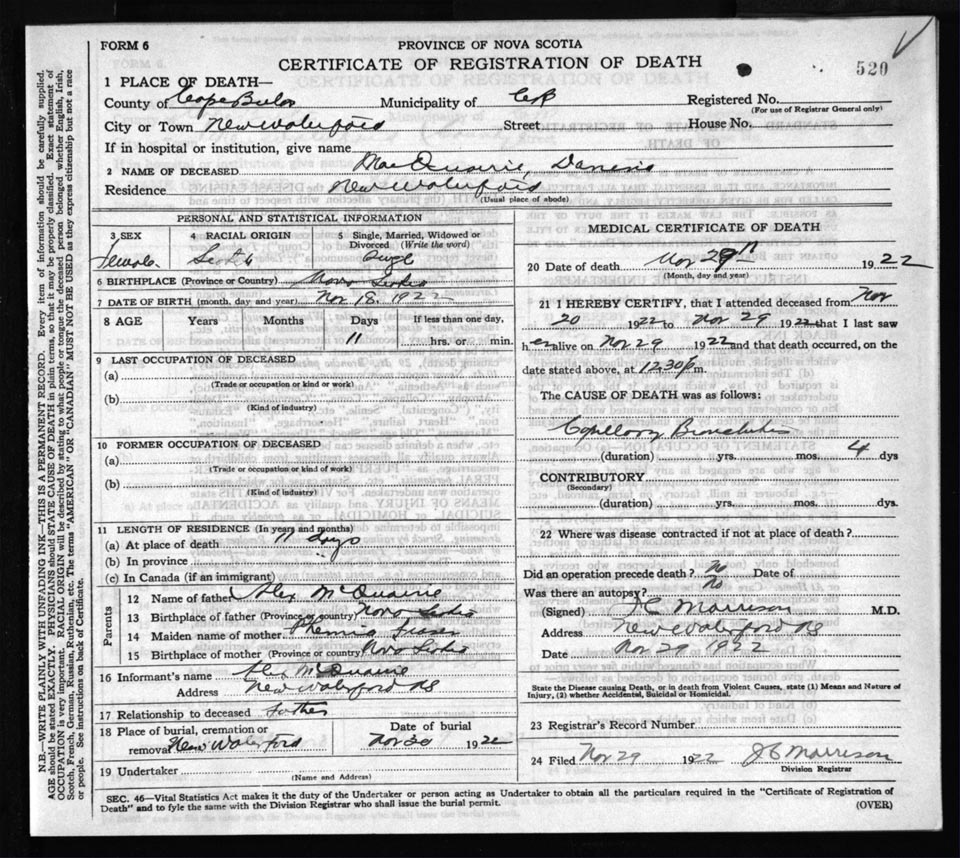 FORM 6
PROVINCE OF NOVA SCOTIA
CERTIFICATE OF REGISTRATION OF DEATH
520
1 PLACE OF DEATH—
County of Cape Breton Municipality of CB Registered No.
(For use of Registrar General only)
City or Town New Waterford Street House No.
If in hospital or institution, give name
2 NAME OF DECEASED MacQuarrie,
Residence New Waterford
(Usual place of abode)
PERSONAL AND STATISTICAL INFORMATION
3 SEX 4 RACIAL ORIGIN 5 Single, Married, Widowed or Divorced (Write the word)
Female Scotch Single
6 BIRTHPLACE (Province or Country) Nova Scotia
7 DATE OF BIRTH (month, day and year) Nov 18. 1922
8 AGE Years Months Days If less than one day,
11 hrs. or min.
9 LAST OCCUPATION OF DECEASED
(a)
(Trade or occupation or kind or work)
(b)
(Kind of industry)
10 FORMER OCCUPATION OF DECEASED
(a)
(Trade or occupation or kind or work)
(b)
(Kind of industry)
11 LENGTH OF RESIDENCE (In years and months)
(a) At place of death 11 days
(b) In province
(c) In Canada (if an immigrant)
Parents
12 Name of father Alex McQuarrie
13 Birthplace of father (Province or country) Nova Scotia
14 Maiden name of mother Phemia Fraser
15 Birthplace of mother (Province or country) Nova Scotia
16 Informant's name Alex McQuarrie
Address New Waterford NS
17 Relationship to deceased Father
18 Place of burial, cremation or removal New Waterford
Date of burial
Nov 30 1922
19 Undertaker
(Name and Address)
MEDICAL CERTIFICATE OF DEATH
20 Date of death Nov 29th 1922
(Month, day and year)
21 I HEREBY CERTIFY, that I attended deceased from Nov
20 1922 to Nov 29 1922 that I last saw
her alive on Nov 29 1922 and that death occurred, on the
date stated above, at 12.30 p m.
The CAUSE OF DEATH was as follows:
Capillary Bronchitis
(duration) yrs. mos. 4 dys
CONTRIBUTORY
(Secondary)
(duration) yrs. mos. dys.
22 Where was disease contracted if not at place of death?
Did an operation precede death? No Date of
Was there an autopsy? No
(Signed) J C Morrison M.D.
Address New Waterford NS
Date Nov 29 1922
State the Disease causing Death, or in death from Violent Causes, state (1) Means and Nature of
Injury, (2) whether Accidental, Suicidal or Homicidal.
23 Registrar's Record Number
24 Filed Nov 29 1922 J C Morrison
Division Registrar
SEC. 46—Vital Statistics Act makes it the duty of the Undertaker or person acting as Undertaker to obtain all the particulars required in the "Certificate of Registration of
Death" and to fyle the same with the Division Registrar who shall issue the burial permit.
(OVER)
N.B.—WRITE PLAINLY WITH UNFADING INK—THIS IS A PERMANENT RECORD. Every item of information should be carefully supplied.
AGE should be stated EXACTLY. PHYSICIANS should STATE CAUSE OF DEATH in plain terms, so that it may be properly classified. Exact statement of
OCCUPATION is very important. RACIAL ORIGIN will be described by stating to what people or tongue the deceased person belonged whether English, Irish,
Scotch, French, German, Russian, Ruthenian, etc. The terms "AMERICAN" OR "CANADIAN" MUST NOT BE USED as they express citizenship but not a race
or people. See instructions on back of Certificate.